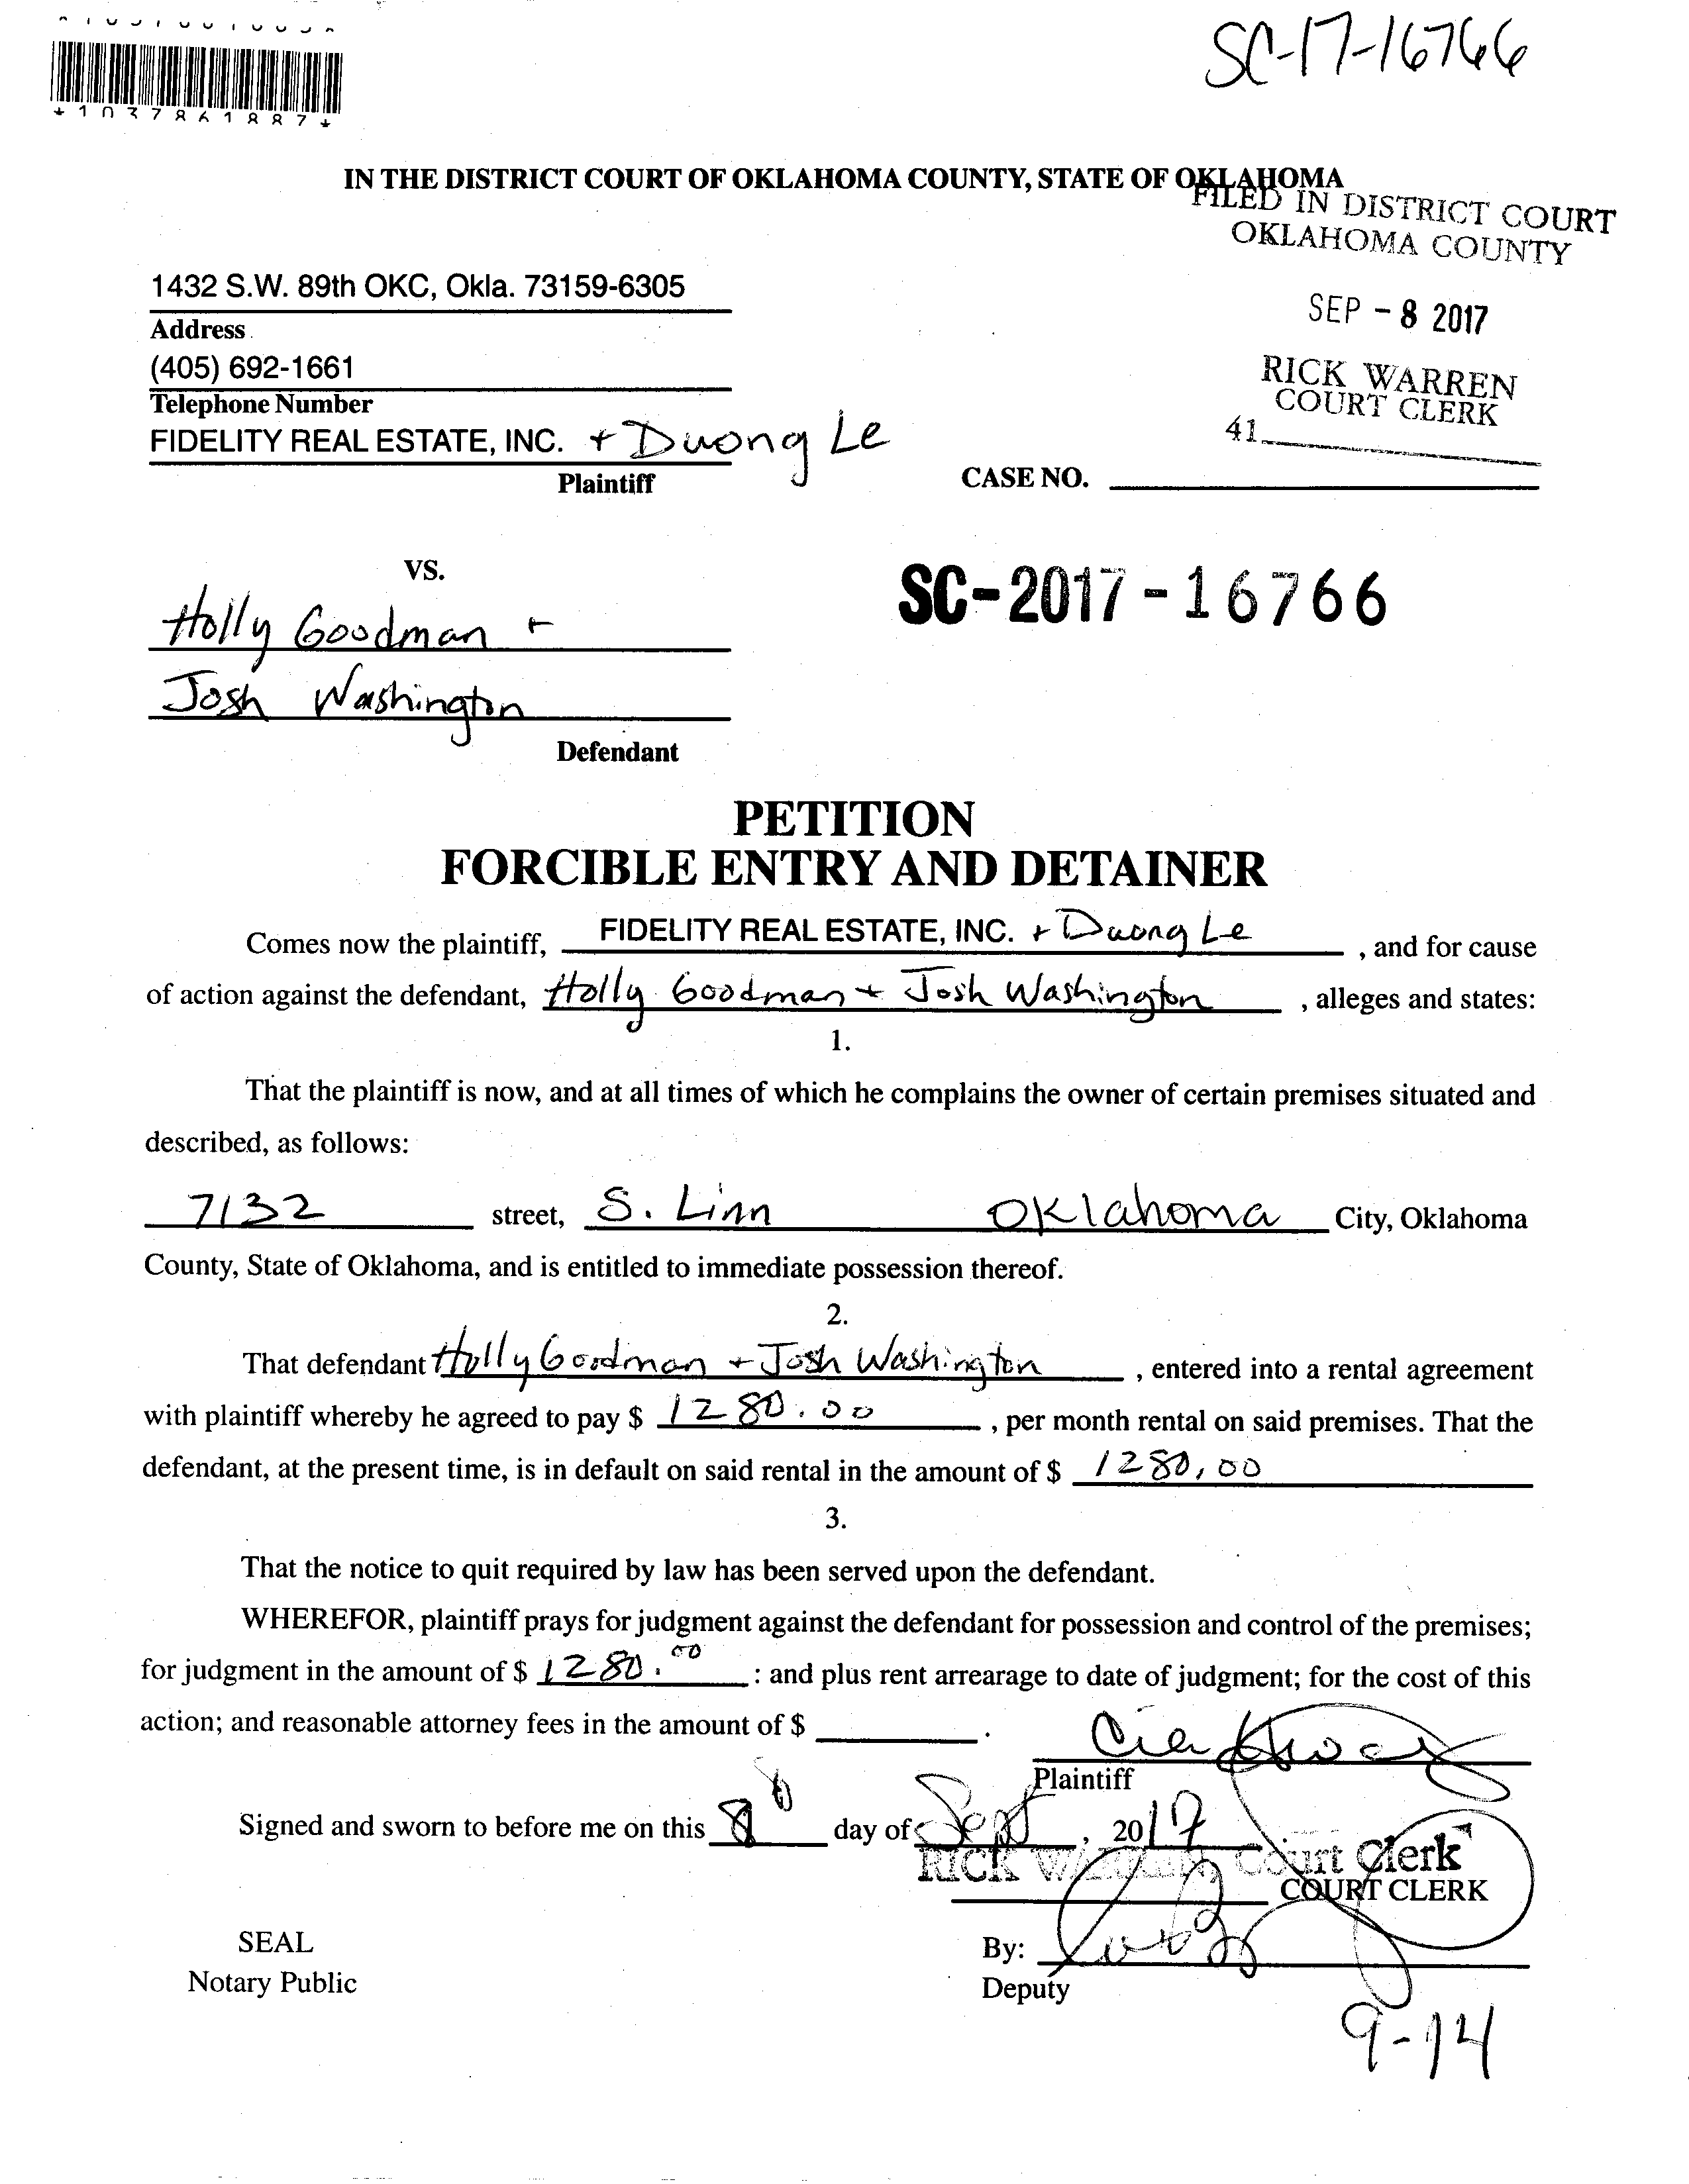 SC-17-16766
*1037861887*
IN THE DISTRICT COURT OF OKLAHOMA COUNTY, STATE OF OKLAHOMA
FILED IN DISTRICT COURT
OKLAHOMA COUNTY
1432 S.W. 89th OKC, Okla. 73159-6305
Address
SEP - 8 2017
(405) 692-1661
Telephone Number
RICK WARREN
COURT CLERK
41
FIDELITY REAL ESTATE, INC. + Duong Le
Plaintiff
CASE NO.
VS.
SC-2017-16766
Holly Goodman +
Josh Washington
Defendant
PETITION
FORCIBLE ENTRY AND DETAINER
Comes now the plaintiff, FIDELITY REAL ESTATE, INC. + Duong Le , and for cause
of action against the defendant, Holly Goodman + Josh Washington , alleges and states:
1.
That the plaintiff is now, and at all times of which he complains the owner of certain premises situated and
described, as follows:
7132 street, S. Linn Oklahoma City, Oklahoma
County, State of Oklahoma, and is entitled to immediate possession thereof.
2.
That defendant Holly Goodman + Josh Washington , entered into a rental agreement
with plaintiff whereby he agreed to pay $ 1280.00 , per month rental on said premises. That the
defendant, at the present time, is in default on said rental in the amount of $ 1280,00
3.
That the notice to quit required by law has been served upon the defendant.
WHEREFOR, plaintiff prays for judgment against the defendant for possession and control of the premises;
for judgment in the amount of $ 1280.00 : and plus rent arrearage to date of judgment; for the cost of this
action; and reasonable attorney fees in the amount of $ .
Plaintiff
Signed and sworn to before me on this 8 day of Sept , 2017
RICK WARREN Court Clerk
COURT CLERK
SEAL
Notary Public
By:
Deputy
9-14